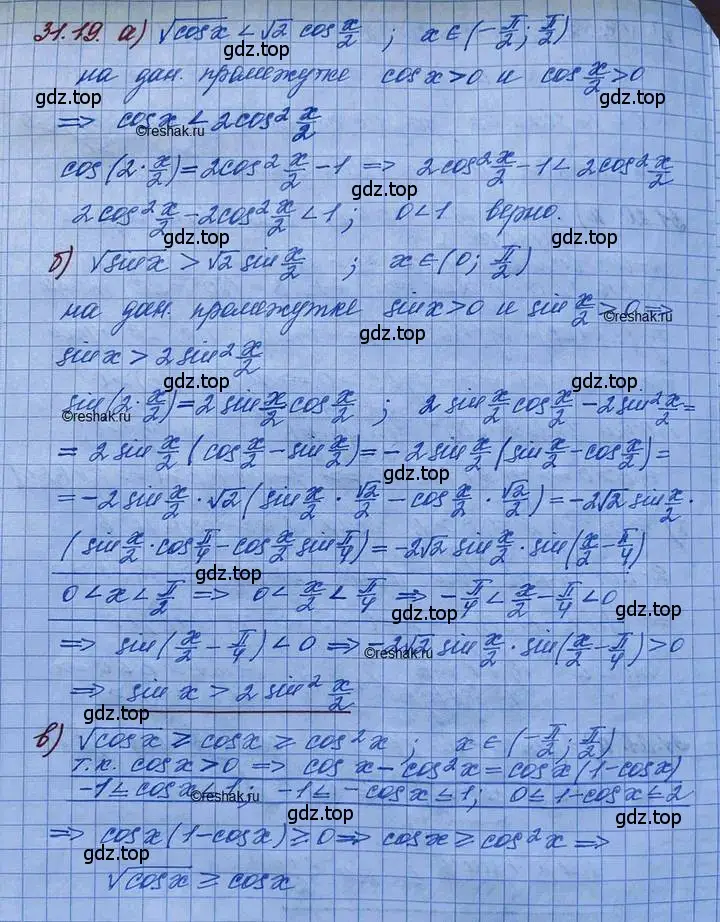 31.19. а) √cosx < √2 cos x/2 ; x∈(-π/2; π/2)
на дан. промежутке cosx>0 и cos x/2 >0
gdz.top gdz.top
⇒ cosx < 2cos² x/2
©reshak.ru
cos(2·x/2)=2cos² x/2 -1 ⇒ 2cos² x/2 -1 < 2cos² x/2
gdz.top gdz.top
2cos² x/2 - 2cos² x/2 < 1 ; 0<1 верно.
gdz.top
б) √sinx > √2 sin x/2 ; x∈(0; π/2)
gdz.top
на дан. промежутке sinx>0 и sin x/2 >0 ⇒
©reshak.ru
gdz.top
sinx > 2sin² x/2
gdz.top gdz.top
sin(2·x/2)=2sin x/2 cos x/2 ; 2sin x/2 cos x/2 - 2sin² x/2 =
©reshak.ru
= 2sin x/2 (cos x/2 - sin x/2) = -2sin x/2 (sin x/2 - cos x/2) =
gdz.top gdz.top
= -2sin x/2 · √2 (sin x/2 · √2/2 - cos x/2 · √2/2) = -2√2 sin x/2 ·
(sin x/2 · cos π/4 - cos x/2 sin π/4) = -2√2 sin x/2 · sin(x/2 - π/4)
gdz.top
0 < x < π/2 ⇒ 0 < x/2 < π/4 ⇒ -π/4 < x/2 - π/4 < 0
gdz.top gdz.top
⇒ sin(x/2 - π/4) < 0 ⇒ -2√2 sin x/2 · sin(x/2 - π/4) > 0
©reshak.ru
⇒ sin x > 2 sin² x/2
gdz.top gdz.top
в) √cosx ≥ cosx ≥ cos²x ; x∈(-π/2; π/2)
т.к. cosx>0 ⇒ cos x - cos²x = cosx(1-cosx)
-1 ≤ cosx ≤ 1; -1 ≤ -cosx ≤ 1; 0 ≤ 1-cosx ≤ 2
©reshak.ru
⇒ cosx(1-cosx) ≥ 0 ⇒ cosx ≥ cos²x ⇒
gdz.top gdz.top
√cosx ≥ cosx